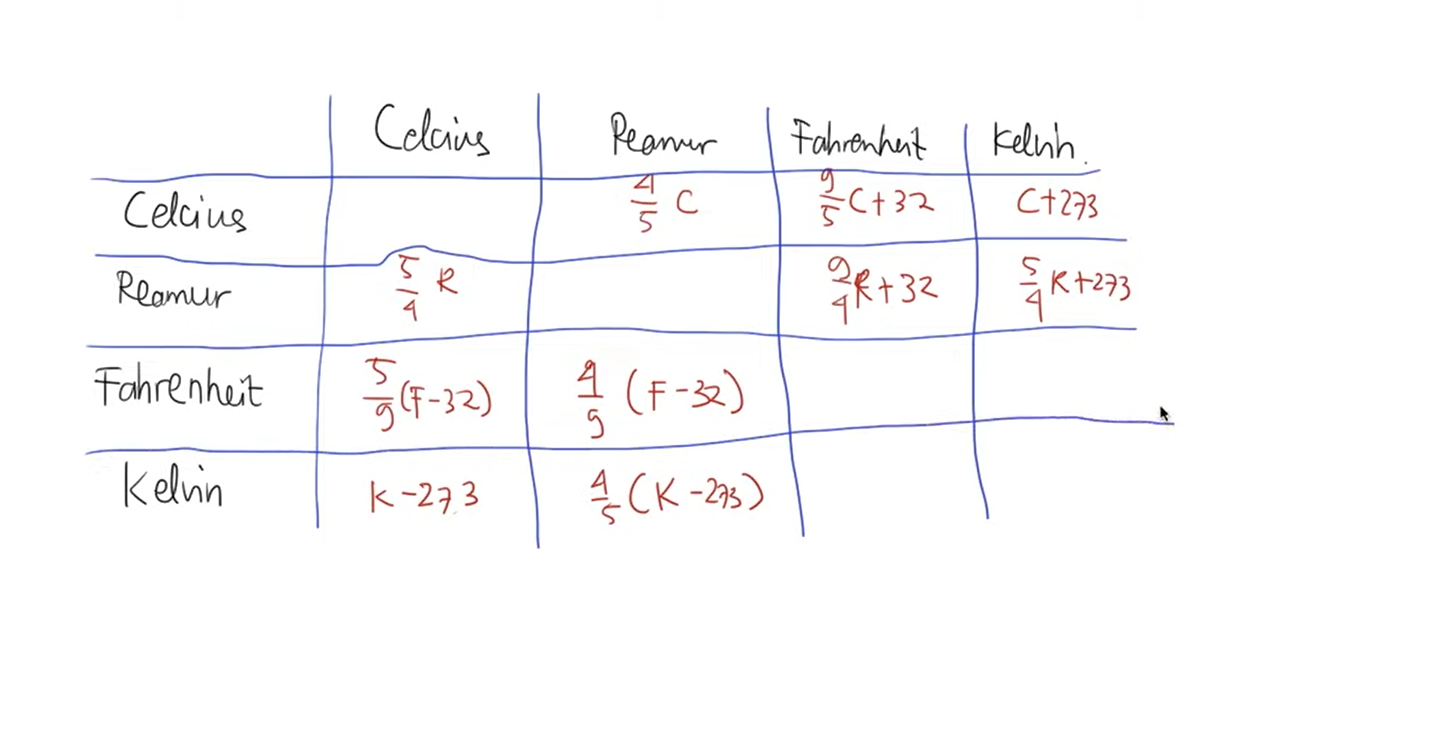 Celcius Reamur Fahrenheit Kelvin.
Celcius 4/5 C 9/5 C+32 C+273
Reamur 5/4 R 9/4 R+32 5/4 R+273
Fahrenheit 5/9 (F-32) 4/9 (F-32)
Kelvin K-273 4/5 (K-273)